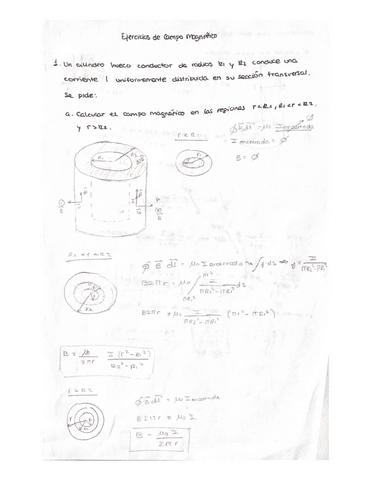 Ejercicios de Campo Magnético
1. Un cilindro hueco conductor de radios R1 y R2 conduce una
corriente I uniformemente distribuida en su sección transversal.
Se pide:
a. Calcular el campo magnético en las regiones r<R1, R1<r<R2
y r>R2.
r<R1
∮B dl = μ0 I encerrada
I encerrada = ∅
B = ∅
R1<r<R2
∮ B dl = μ0 I encerrada
B2πr = μ0
B2πr = μ0 I/(πR2²-πR1²) (πr²-πR1²)
B = μ0/2πr I(r²-R1²)/(R2²-R1²)
r>R2
∮B dl = μ0 I encerrada
B2πr = μ0 I
B = μ0 I/2πr